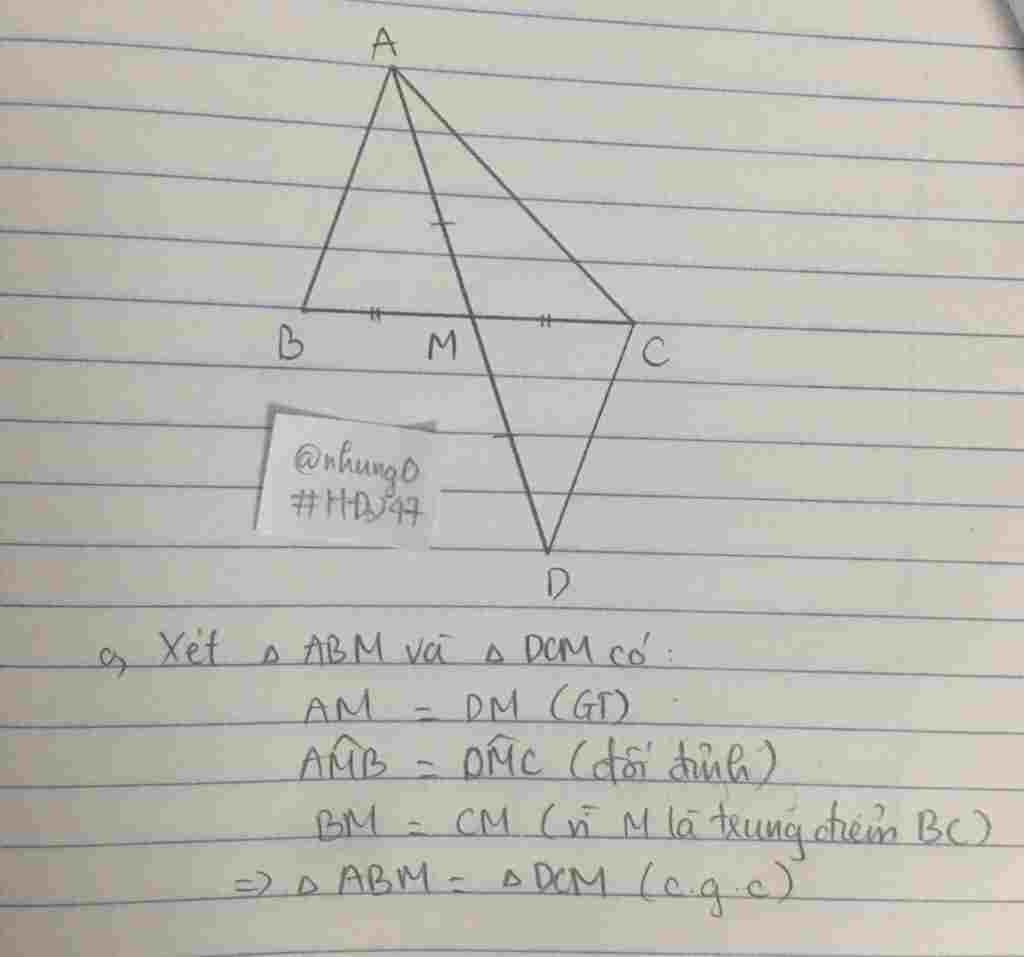 A
B
M
C
@nhung0
D
a, Xét △ ABM và △ DCM có:
AM = DM (GT)
AM̂B = DM̂C (đối đỉnh)
BM = CM (vì M là trung điểm BC)
=> △ ABM = △ DCM (c.g.c)